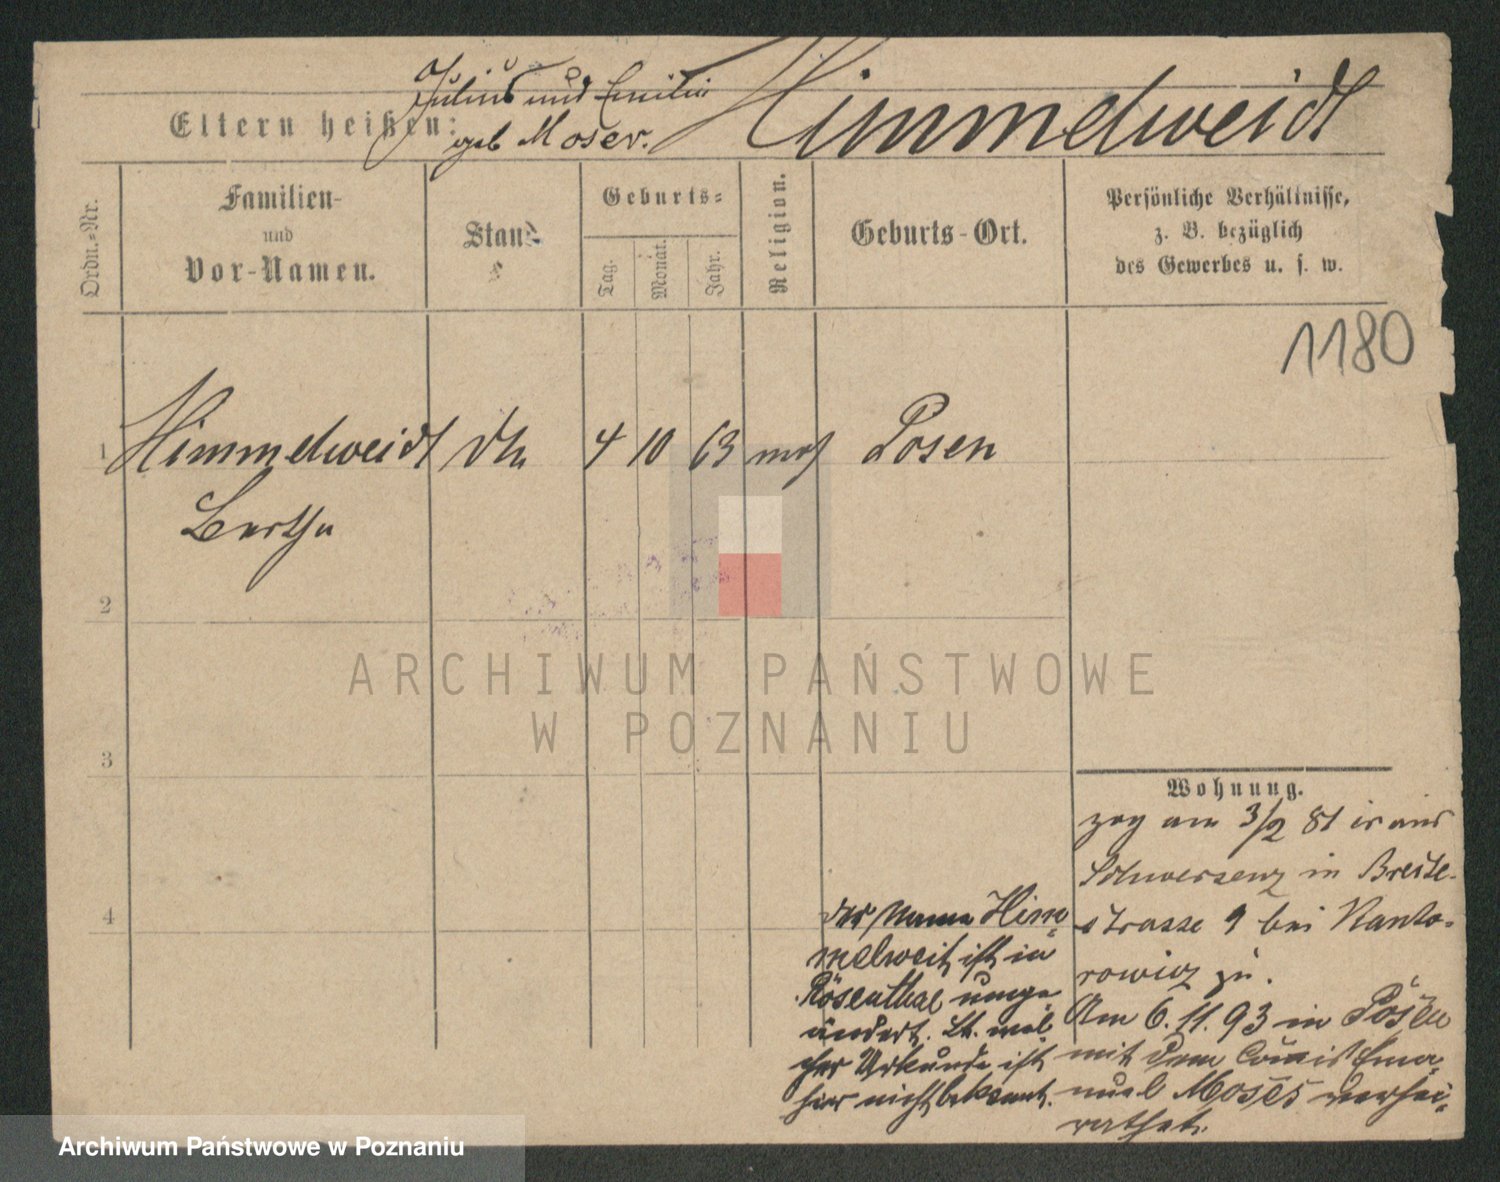 Julius und Emilie
Eltern heißen:
geb Moser.
Himmelweidt
Ordn.-Nr.
Familien-
und
Vor-Namen.
Stand
Geburts-
Tag.
Monat.
Jahr.
Religion.
Geburts-Ort.
Persönliche Verhältnisse,
z. B. bezüglich
des Gewerbes u. s. w.
1180
1 Himmelweidt 4 10 63 mos Posen
Bertha
2
3
4
ARCHIWUM PAŃSTWOWE
W POZNANIU
Wohnung.
zog am 3/2 81 aus
Schwersenz in Breite-
strasse 9 bei Kanto-
rowicz zu.
Am 6. 11. 93 in Posen
mit dem Ema-
nuel Moses verhei-
rathet.
der Name Him-
melweit ist in
Rosenthal umge-
ändert. Lt. wel-
cher Urkunde ist
hier nicht bekannt.
Archiwum Państwowe w Poznaniu